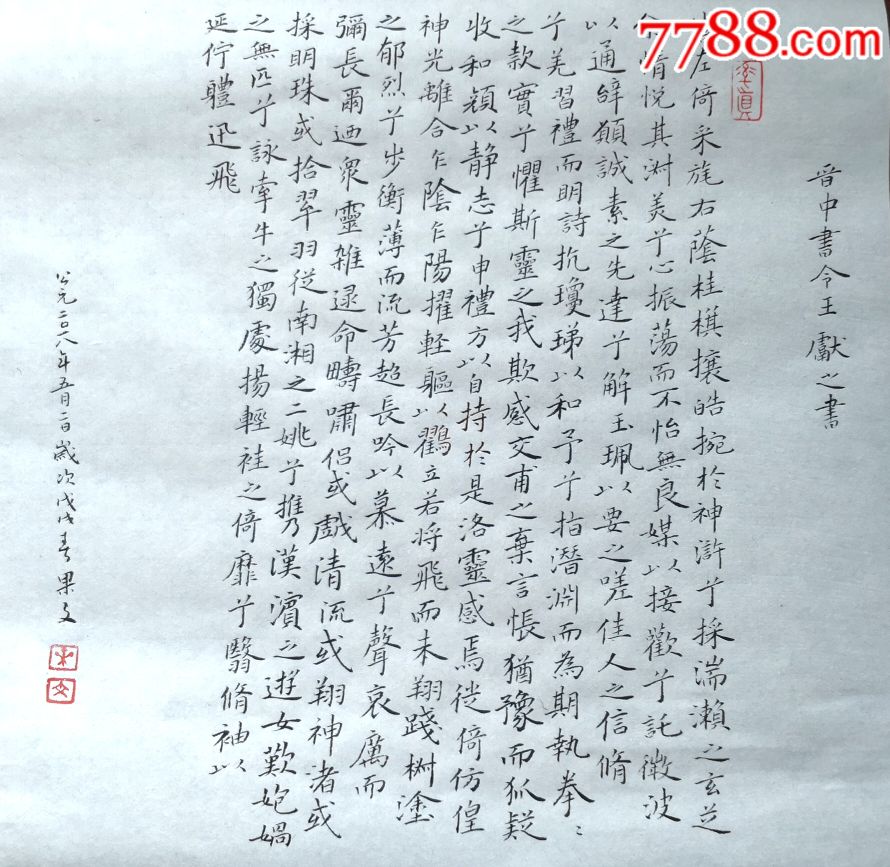 7788.com
晋中書令王獻之書
左倚采旄右蔭桂棋攘皓捥於神滸兮採湍瀨之玄芝
余情悦其淑美兮心振蕩而不怡無良媒以接歡兮託微波
以通辝願誠素之先達兮解玉珮以要之嗟佳人之信脩
兮羌習禮而明詩抗瓊珶以和予兮指潛淵而為期執拳〻
之款實兮懼斯靈之我欺感交甫之棄言悵猶豫而狐疑
收和顔以静志兮申禮方以自持於是洛靈感焉徙倚仿偟
神光離合乍陰乍陽擢輕軀以鸖立若将飛而未翔踐椒塗
之郁烈兮步衡薄而流芳超長吟以慕遠兮聲哀厲而
彌長爾迺衆靈雜遝命疇嘯侣或戲清流或翔神渚或
採明珠或拾翠羽從南湘之二姚兮攜漢濱之遊女歎匏媧
之無匹兮詠牽牛之獨處揚輕袿之倚靡兮翳脩袖以
延佇軆迅飛
公元二〇一八年五月二日歲次戊戌春果文